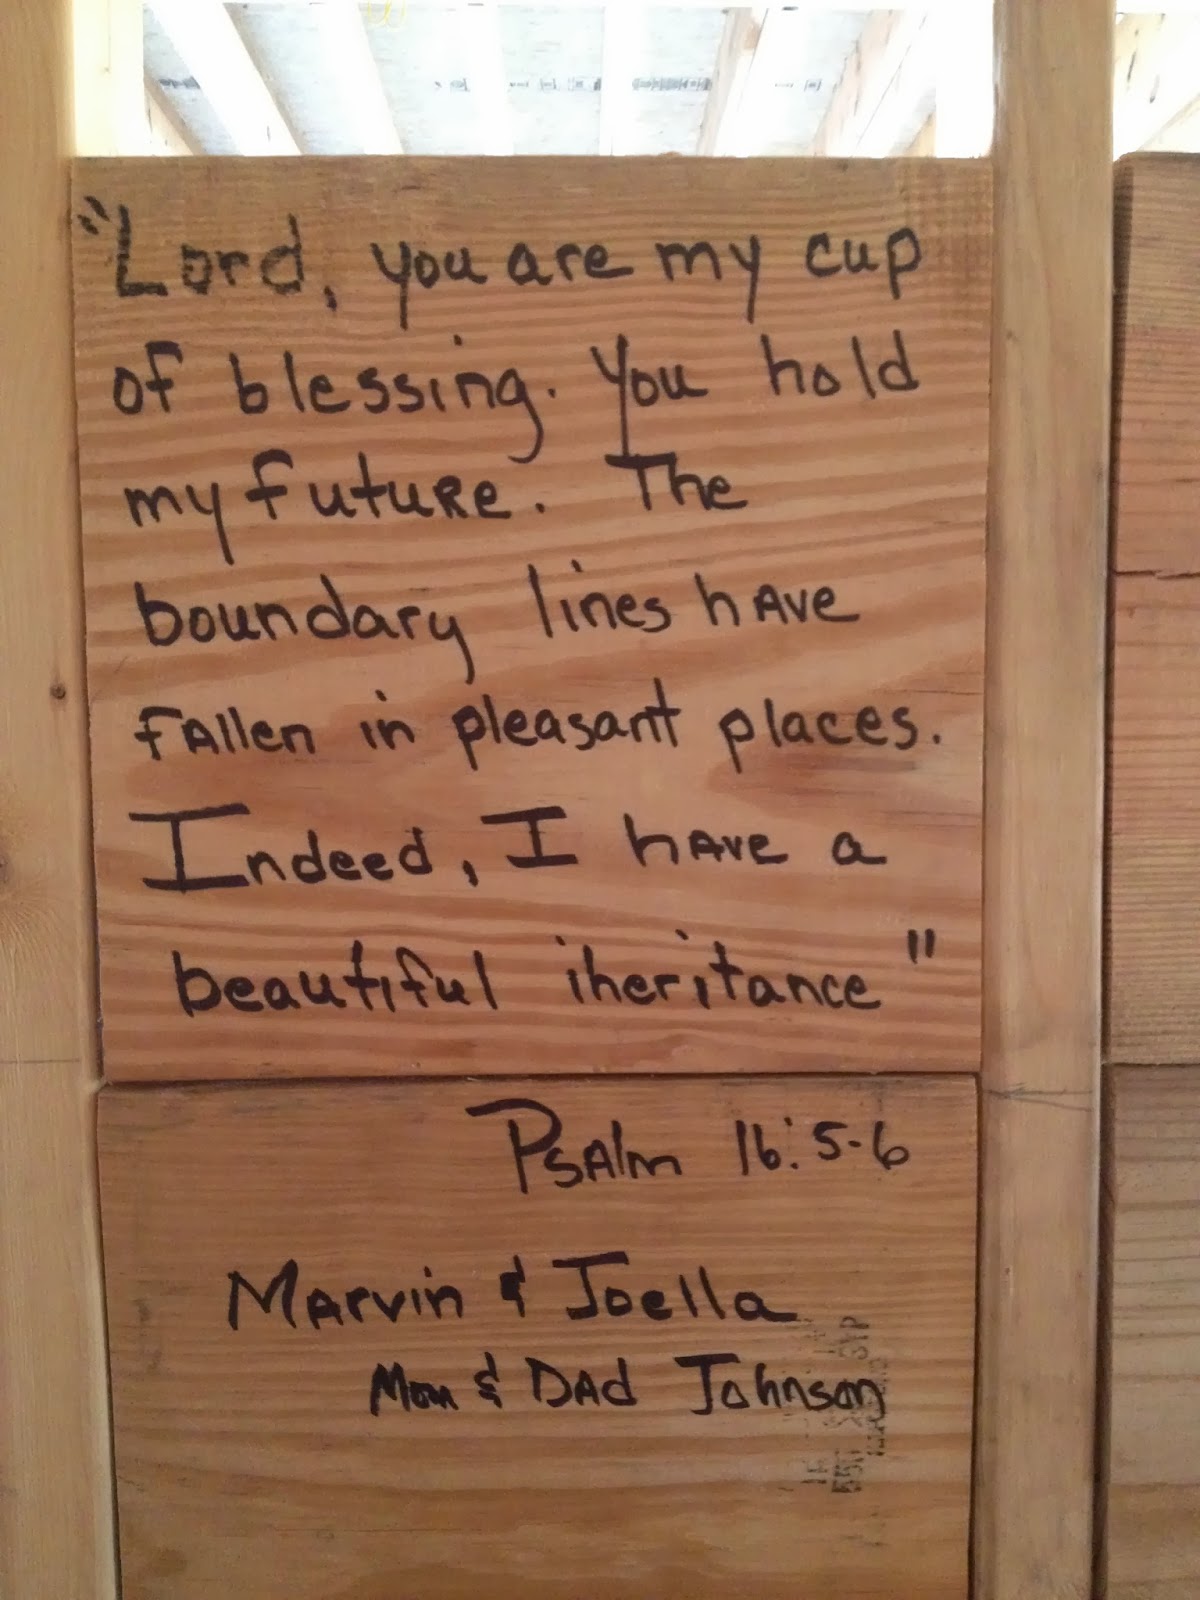 "Lord, you are my cup
of blessing. You hold
my future. The
boundary lines have
fallen in pleasant places.
Indeed, I have a
beautiful iheritance"
Psalm 16:5-6
Marvin & Joella
Mom & Dad Johnson